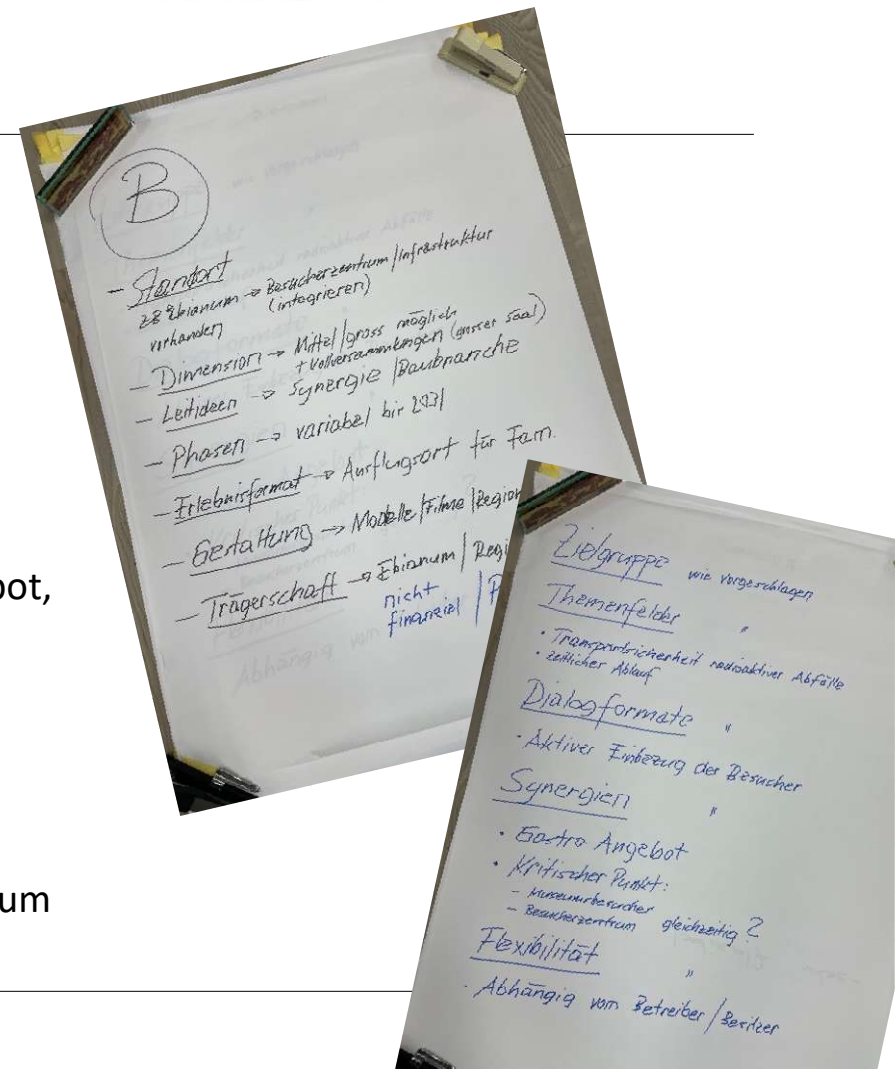 bot,
um
B
- Standort
zB Ebianum → Besucherzentrum/Infrastruktur
vorhanden (integrieren)
- Dimension → Mittel/gross möglich
+ Vollversammlungen (grosser Saal)
- Leitideen → Synergie/Baubranche
- Phasen → variabel bis 2031
- Erlebnisformat → Ausflugsort für Fam.
- Gestaltung → Modelle/Filme/Region
- Trägerschaft → Ebianum/Regi
nicht
finanziel / F
Zielgruppe wie vorgeschlagen
Themenfelder "
• Transportsicherheit radioaktiver Abfälle
• zeitlicher Ablauf
Dialogformate "
• Aktiver Einbezug der Besucher
Synergien "
• Gastro Angebot
• Kritischer Punkt:
- Museumsbesucher
- Besucherzentrum gleichzeitig?
Flexibilität "
• Abhängig vom Betreiber/Besitzer